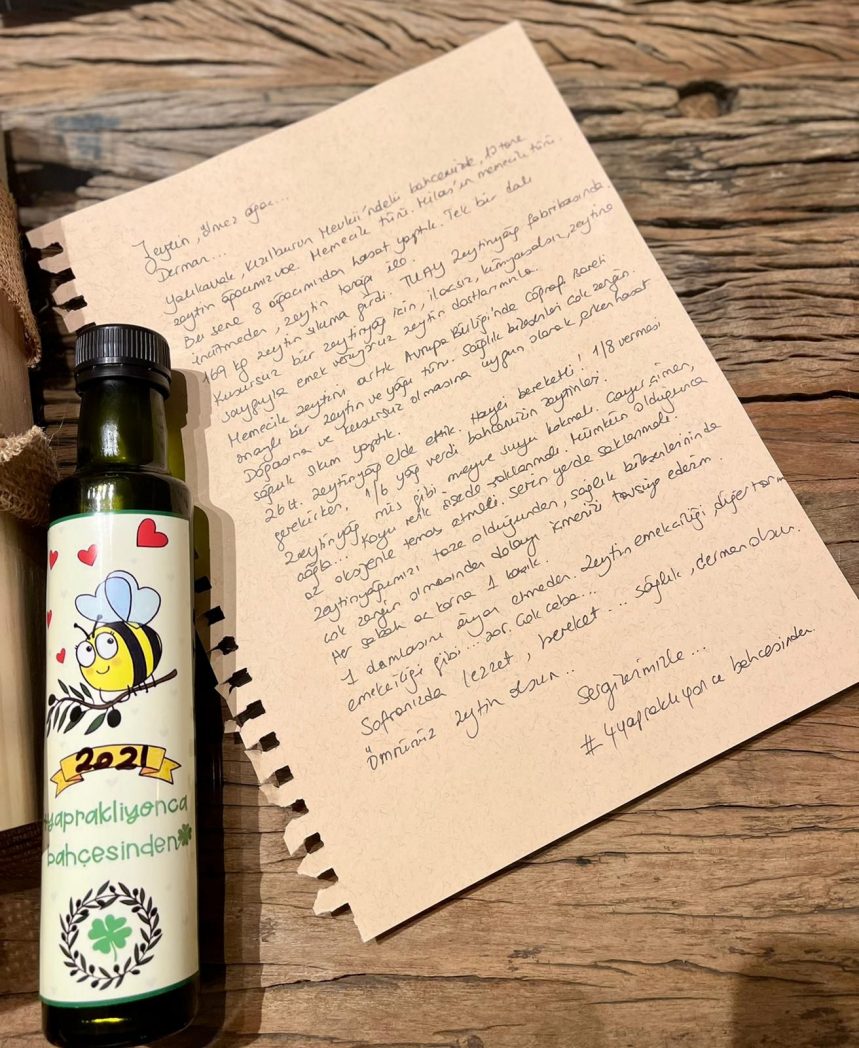 Zeytin, ölmez ağaç...
Derman...
Yalıkavak, Kızılburun Mevkii'ndeki bahçemizde, 12 tane
zeytin ağacımız var. Memecik türü. Milas'ın memecik türü.
Bu sene 8 ağacımızdan hasat yaptık. Tek bir dalı
incitmeden, zeytin tarağı ile.
169 kg zeytin sıkıma girdi. TUAY Zeytinyağı fabrikasında.
Kusursuz bir zeytinyağı için, ilaçsız, kimyasalsız, zeytine
saygıyla emek veriyoruz zeytin dostlarımızla.
Memecik zeytini artık Avrupa Birliği'nde coğrafi işaretli
onaylı bir zeytin ve yağı türü. Sağlık bileşenleri çok zengin.
Doğasına ve kusursuz olmasına uygun olarak, erken hasat
soğuk sıkım yaptık.
26 lt. zeytinyağı elde ettik. Hayli bereketli! 1/8 vermesi
gerekirken, 1/6 yağ verdi bahçemizin zeytinleri.
Zeytinyağı mis gibi meyve suyu kokmalı. Çayır çimen,
çağla... Koyu renk şişede saklanmalı. Mümkün olduğunca
az oksijenle temas etmeli. Serin yerde saklanmalı.
Zeytinyağımızı taze olduğundan, sağlık bileşenlerinin de
çok zengin olmasından dolayı içmenizi tavsiye ederim.
Her sabah aç karna 1 kaşık.
1 damlasını ziyan etmeden. Zeytin emekçiliği, diğer tarım
emekçiliği gibi... zor. Çok çaba...
Sofranızda lezzet, bereket... sağlık, derman olsun.
Ömrünüz zeytin olsun...
Sevgilerimizle...
#4yapraklıyonca bahçesinden
2021
4yapraklıyonca
bahçesinden